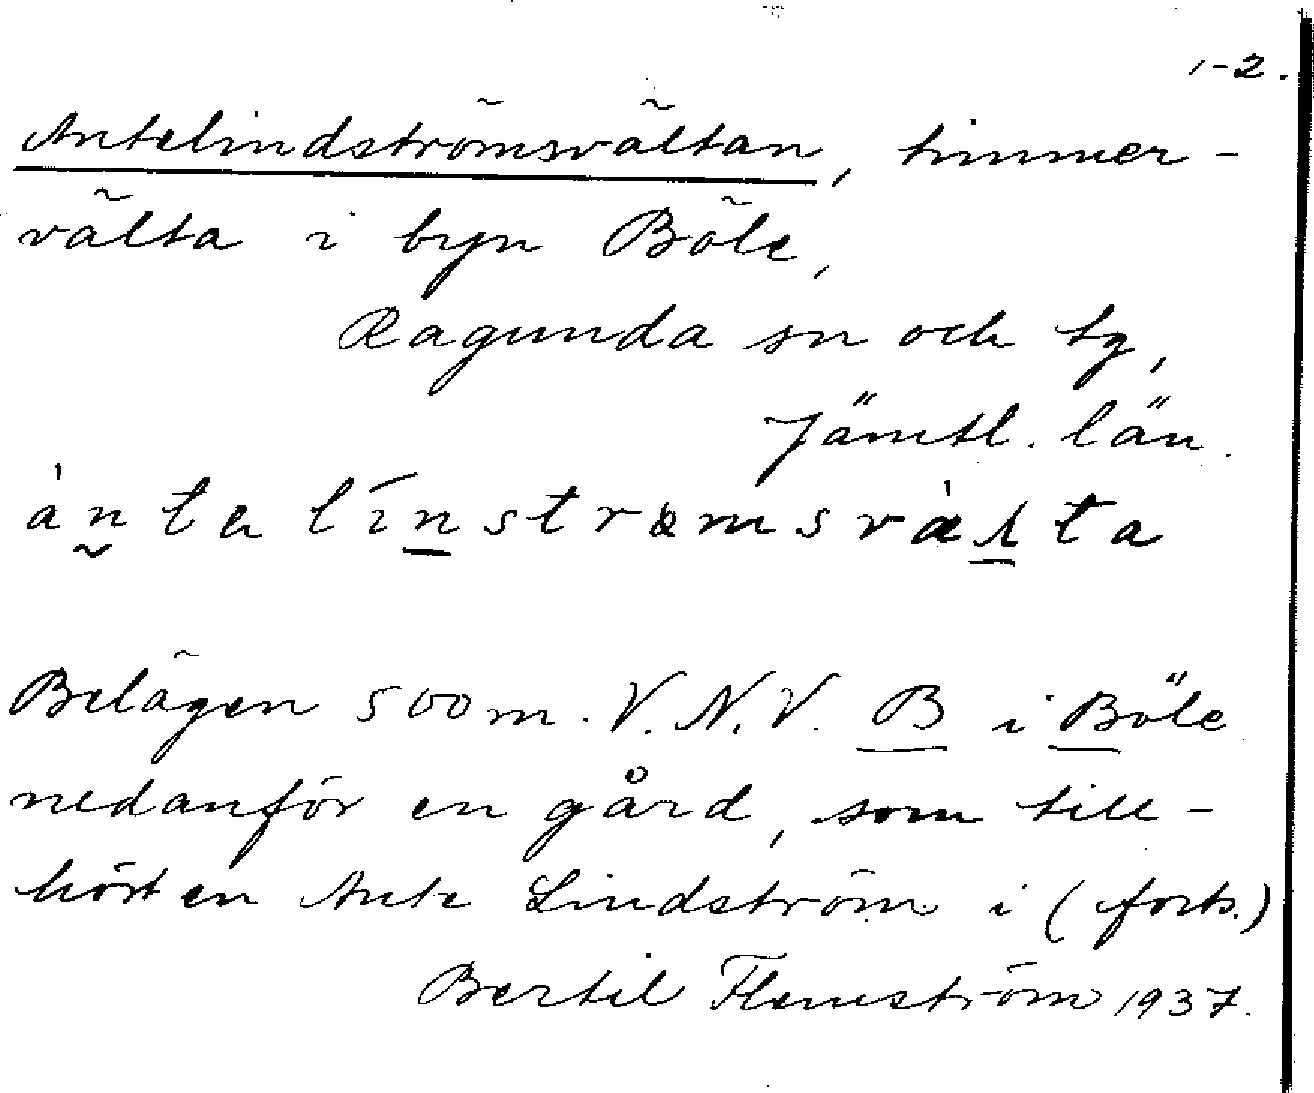 1-2.
Antelindströmsvältan, timmer-
välta i byn Böle,
Ragunda sn och tg,
Jämtl. län.
àntelinstrømsvæ̀lta
Belägen 500 m. V.N.V. B i Böle
nedanför en gård, som till-
hört en Ante Lindström i (forts.)
Bertil Flemström 1937.